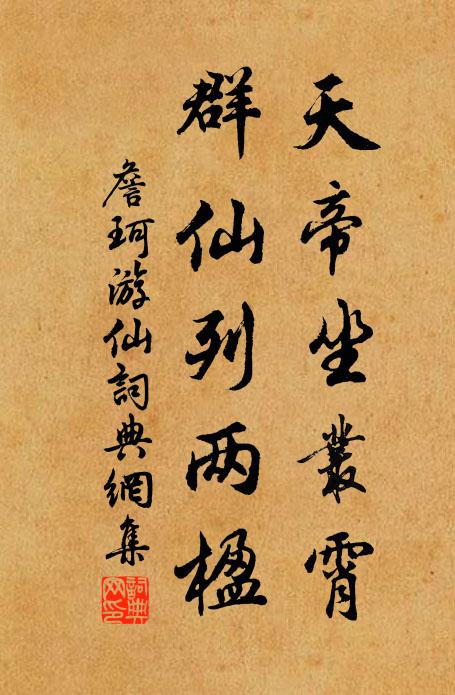 天帝坐叢霄
群仙列两楹
詹珂游仙詞典網集
詞典網印